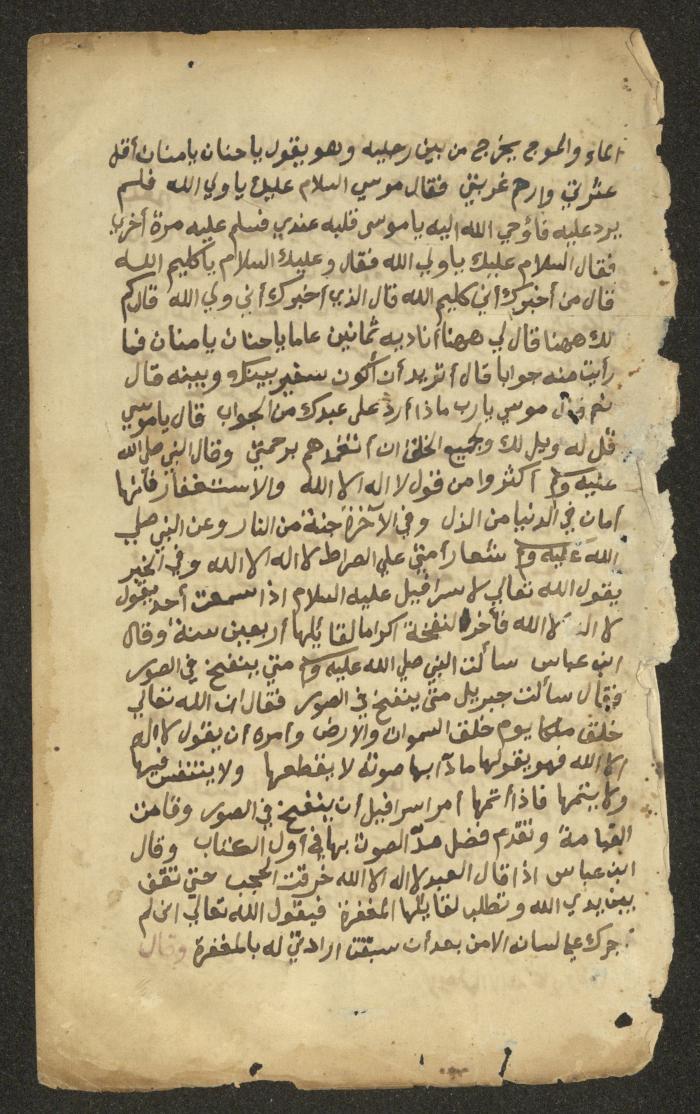 الماء والموج يخرج من بين رجليه وهو يقول ياحنان يامنان أقل
عثرتي وارحم غربتي فقال موسي السلام عليك ياولي الله فلم
يرد عليه فأوحي الله اليه ياموسى قلبه عندي فسلم عليه مرة أخري
فقال السلام عليك ياولي الله فقال وعليك السلام ياكليم الله
قال من أخبرك أني كليم الله قال الذي أخبرك أني ولي الله قال كم
لك ههنا قال لي ههنا أناديه ثمانين عاما ياحنان يامنان فما
رأيت منه جوابا قال أتريد أن أكون سفير بينك وبينه قال
نعم قال موسي يارب ماذا أرد على عبدك من الجواب قال ياموسي
قل له ويل لك ولجميع الخلق ان لم أتغمدهم برحمتي وقال النبي صلي الله
عليه وسلم أكثروا من قول لا اله الا الله والاستغفار فانها
أمان في الدنيا من الذل وفي الآخرة جنة من النار وعن النبي صلي
الله عليه وسلم شعار أمتي علي الصراط لا اله الا الله وفي الخبر
يقول الله تعالي لاسرافيل عليه السلام اذا سمعت أحد يقول
لا اله الا الله فأخر النفخة اكراما لقائلها أربعين سنة وقال
ابن عباس سألت النبي صلي الله عليه وسلم متي ينفخ في الصور
فقال سألت جبريل متي ينفخ في الصور فقال ان الله تعالي
خلق ملكا يوم خلق السموات والارض وأمره أن يقول لا اله
الا الله فهو يقولها مادّا بها صوته لا يقطعها ولا يتنفس فيها
ولا يتمها فاذا أتمها أمر اسرافيل أن ينفخ في الصور وقامت
القيامة وتقدم فضل مدّ الصوت بها في أول الكتاب وقال
ابن عباس اذا قال العبد لا اله الا الله خرقت الحجب حتي تقف
بين يدي الله وتطلب لقائلها المغفرة فيقول الله تعالي اني لم
أجرك علي لسان الا من بعد أن سبقت ارادتي له بالمغفرة وقال